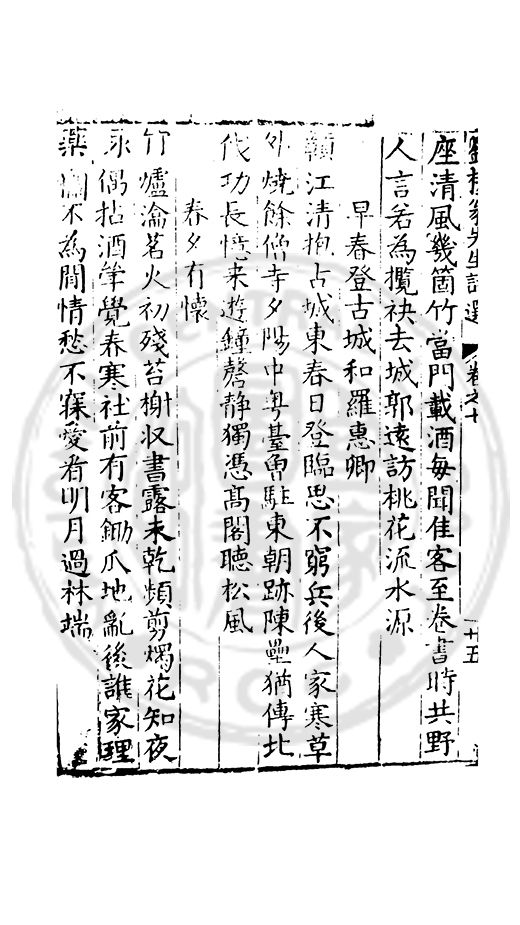 劉槎翁先生詩選 卷之十 十五
座清風幾箇竹當門載酒每聞佳客至卷書時共野
人言若為攬袂去城郭遠訪桃花流水源
早春登古城和羅惠卿
贛江清抱占城東春日登臨思不窮兵後人家寒草
外燒餘僧寺夕陽中粤臺曾駐東朝跡陳壘猶傳北
伐功長憶来遊鐘磬静獨憑髙閣聽松風
春夕有懷
竹爐瀹茗火初殘苔榭収書露未乾頻剪燭花知夜
永偶拈酒筆覺春寒社前有客鋤瓜地亂後誰家理
藥欄不為閒情愁不寐愛看明月過林端